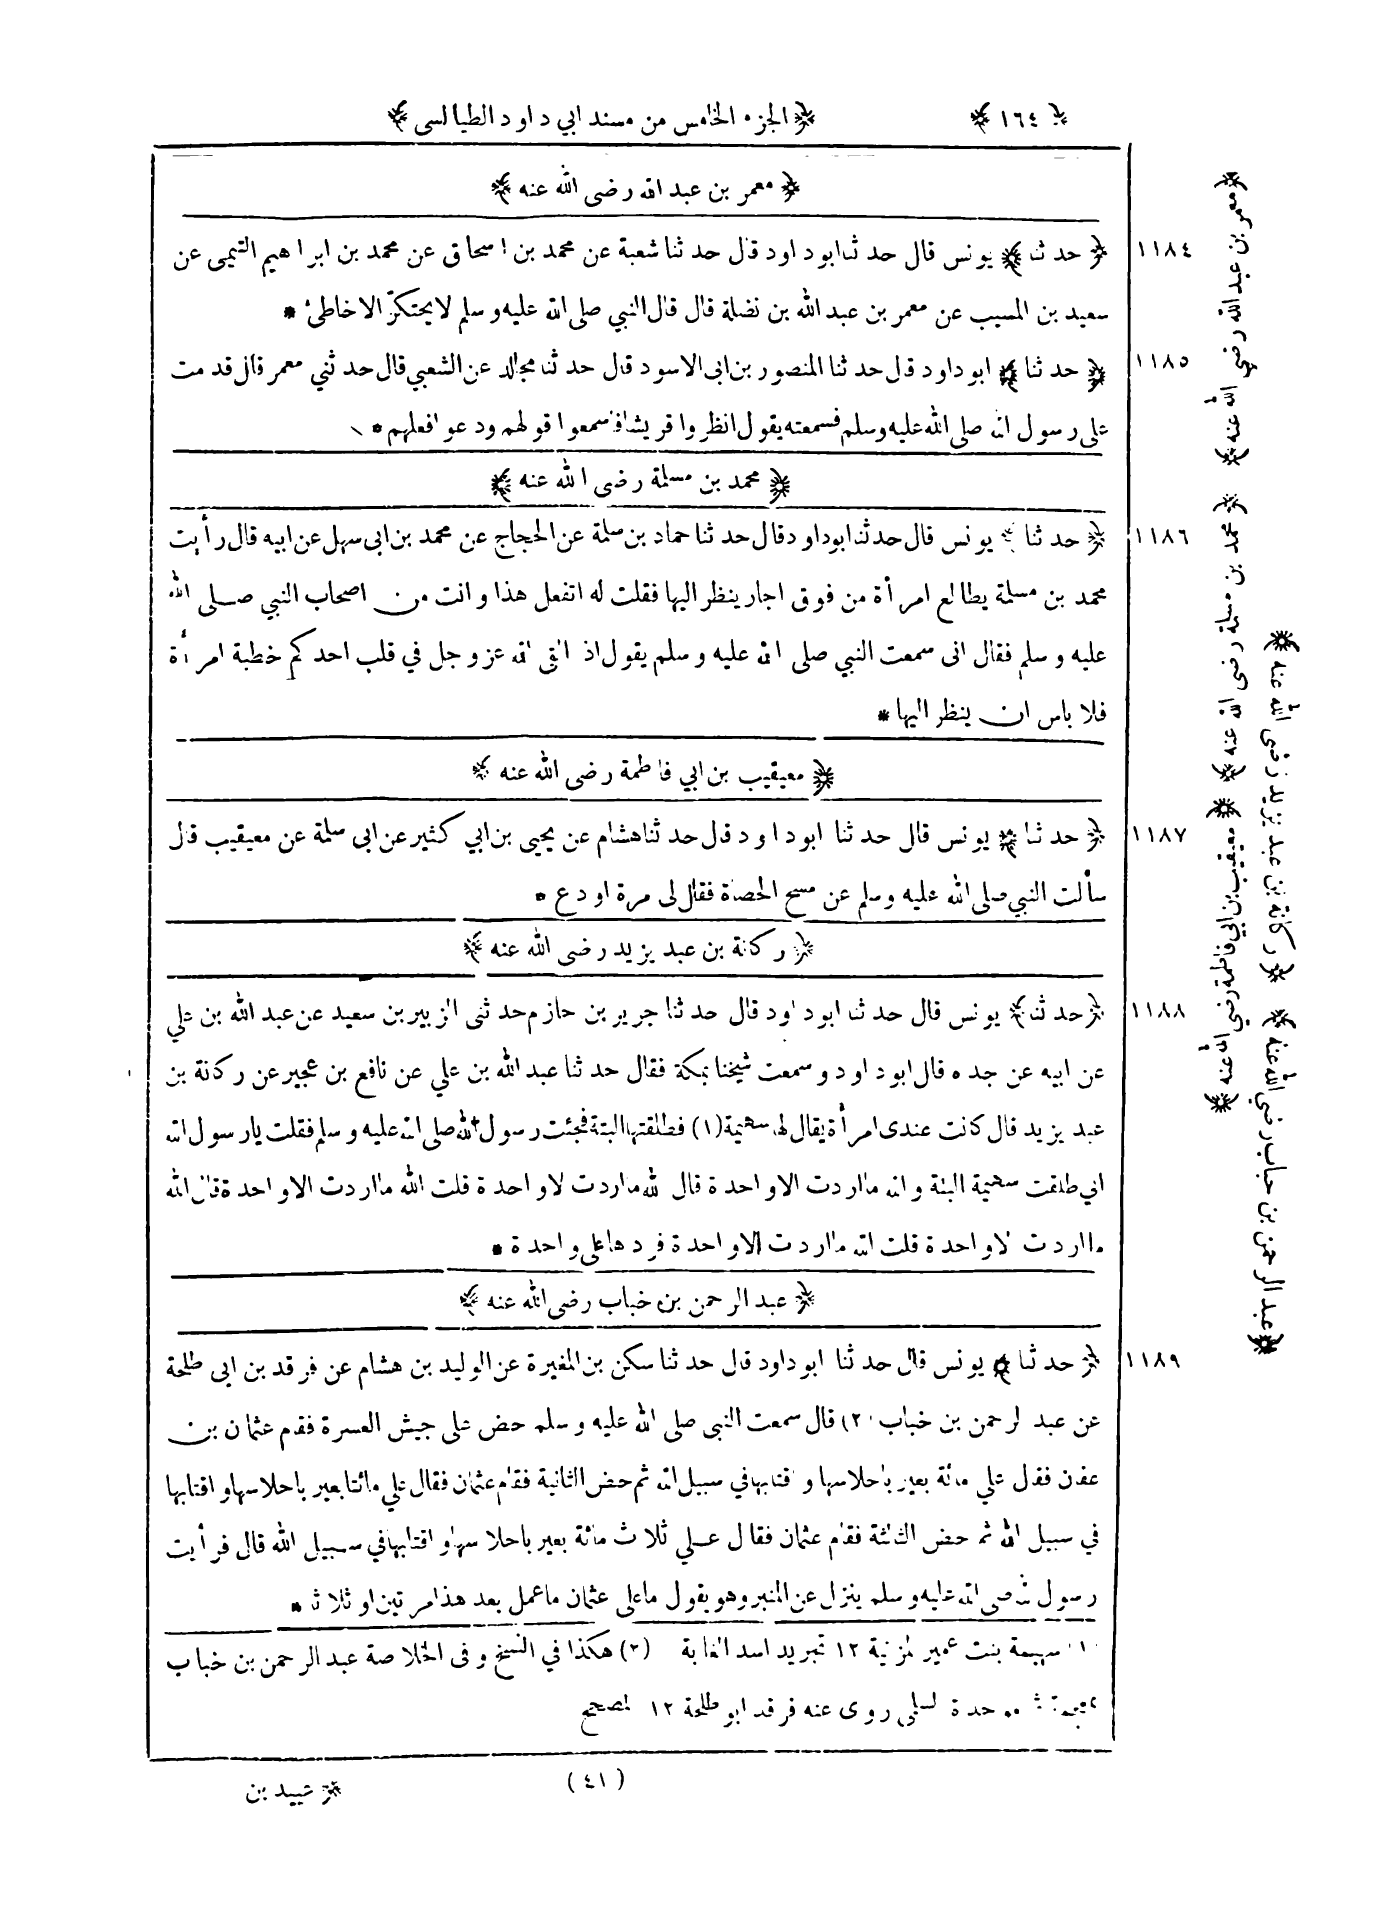 ﴿ ١٦٤ ﴾
﴿ الجزء الخامس من مسند ابي داود الطيالسى ﴾
﴿ معمر بن عبد الله رضى الله عنه ﴾
١١٨٤ ﴿ حدثنا ﴾ يونس قال حدثنا ابو داود قال حدثنا شعبة عن محمد بن اسحاق عن محمد بن ابراهيم التيمى عن
سعيد بن المسيب عن معمر بن عبد الله بن نضلة قال قال النبي صلى الله عليه وسلم لا يحتكر الا خاطئ *
١١٨٥ ﴿ حدثنا ﴾ ابو داود قال حدثنا المنصور بن ابى الاسود قال حدثنا مجالد عن الشعبي قال حدثني معمر قال قدمت
على رسول الله صلى الله عليه وسلم فسمعته يقول انظروا قريشا فاسمعوا قولهم ودعوا فعلهم *
﴿ محمد بن مسلمة رضى الله عنه ﴾
١١٨٦ ﴿ حدثنا ﴾ يونس قال حدثنا ابو داود قال حدثنا حماد بن سلمة عن الحجاج عن محمد بن ابى سهل عن ابيه قال رأيت
محمد بن مسلمة يطالع امرأة من فوق اجار ينظر اليها فقلت له اتفعل هذا وانت من اصحاب النبي صلى الله
عليه وسلم فقال انى سمعت النبي صلى الله عليه وسلم يقول اذا القى الله عز وجل في قلب احدكم خطبة امرأة
فلا باس ان ينظر اليها *
﴿ معيقيب بن ابي فاطمة رضى الله عنه ﴾
١١٨٧ ﴿ حدثنا ﴾ يونس قال حدثنا ابو داود قال حدثنا هشام عن يحيى بن ابي كثير عن ابى سلمة عن معيقيب قال
سألت النبي صلى الله عليه وسلم عن مسح الحصاة فقال لى مرة او دع *
﴿ ركانة بن عبد يزيد رضى الله عنه ﴾
١١٨٨ ﴿ حدثنا ﴾ يونس قال حدثنا ابو داود قال حدثنا جرير بن حازم حدثنى الزبير بن سعيد عن عبد الله بن علي
عن ابيه عن جده قال ابو داود وسمعت شيخنا بمكة فقال حدثنا عبد الله بن علي عن نافع بن عجير عن ركانة بن
عبد يزيد قال كانت عندى امرأة يقال لها سهيمة (١) فطلقتها البتة فجئت رسول الله صلى الله عليه وسلم فقلت يا رسول الله
اني طلقت سهيمة البتة والله ما اردت الا واحدة قال الله ما اردت الا واحدة قلت الله ما اردت الا واحدة قال الله
ما اردت الا واحدة قلت الله ما اردت الا واحدة فردها على واحدة *
﴿ عبد الرحمن بن خباب رضى الله عنه ﴾
١١٨٩ ﴿ حدثنا ﴾ يونس قال حدثنا ابو داود قال حدثنا سكن بن المغيرة عن الوليد بن هشام عن فرقد بن ابى طلحة
عن عبد الرحمن بن خباب (٢) قال سمعت النبى صلى الله عليه وسلم حض على جيش العسرة فقام عثمان بن
عفان فقال علي مائة بعير باحلاسها واقتابها في سبيل الله ثم حض الثانية فقام عثمان فقال علي مائتا بعير باحلاسها واقتابها
في سبيل الله ثم حض الثالثة فقام عثمان فقال علي ثلاث مائة بعير باحلاسها واقتابها في سبيل الله قال فرأيت
رسول الله صلى الله عليه وسلم ينزل عن المنبر وهو يقول ما على عثمان ما عمل بعد هذا مرتين او ثلاثا *
(١) سهيمة بنت عمير المزنية ١٢ تجريد اسد الغابة (٢) هكذا في النسخ وفى الخلاصة عبد الرحمن بن خباب
بمعجمة ثم موحدة السلمى روى عنه فرقد ابو طلحة ١٢ المصحح
(٤١)
﴿ عبيد بن
﴿ معمر بن عبد الله رضي الله عنه ﴾ ﴿ محمد بن مسلمة رضى الله عنه ﴾ ﴿ معيقيب بن ابي فاطمة رضي الله عنه ﴾
﴿ ركانة بن عبد يزيد رضى الله عنه ﴾ ﴿ عبد الرحمن بن خباب رضي الله عنه ﴾